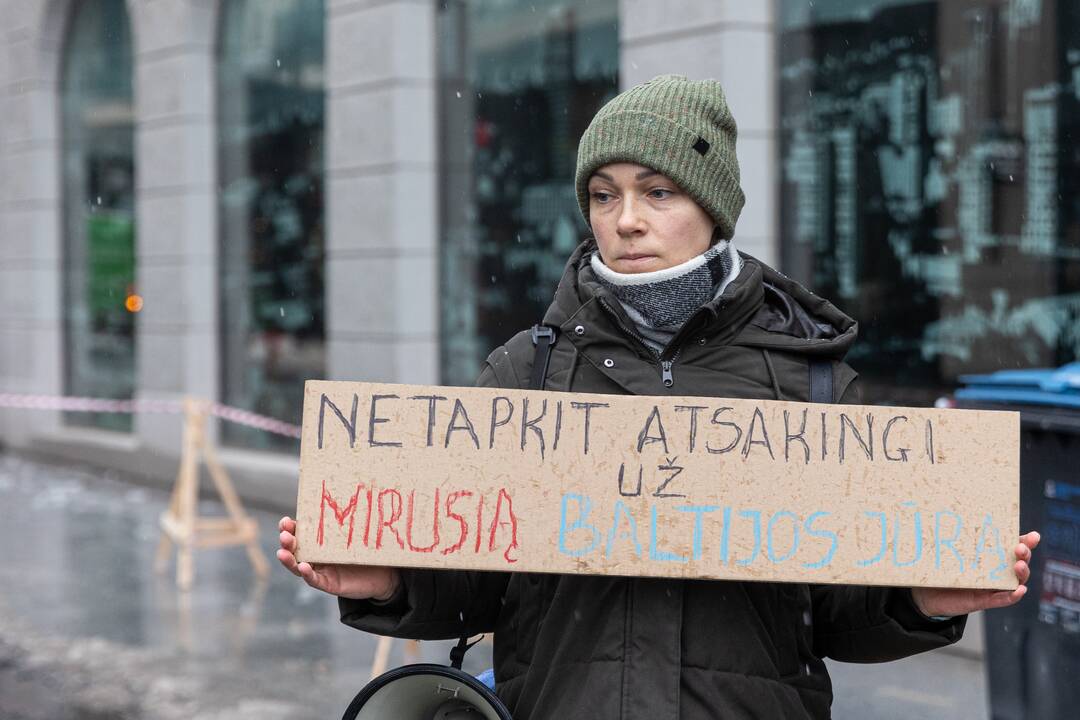 NETAPKIT ATSAKINGI
UŽ
MIRUSIĄ BALTIJOS JŪRĄ